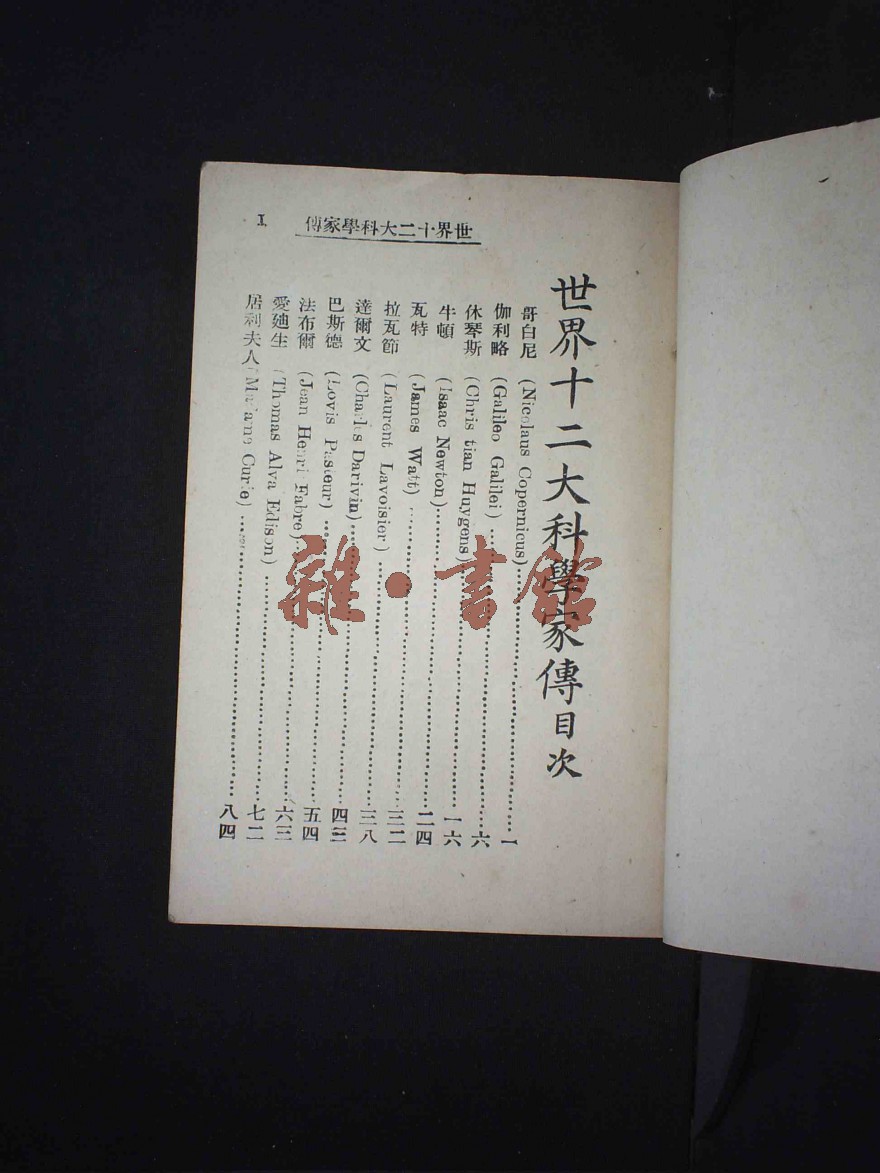 世界十二大科學家傳
1
世界十二大科學家傳目次
哥白尼 (Nicolaus Copernicus)……一
伽利略 (Galileo Galilei)……六
休琴斯 (Chris tian Huygens)……一六
牛頓 (Isaac Newton)……二四
瓦特 (James Watt)……三二
拉瓦節 (Laurent Lavoisier)……三八
達爾文 (Charles Darivin)……四三
巴斯德 (Lovis Pasteur)……五四
法布爾 (Jean Henri Fabre)……六三
愛廸生 (Thomas Alva Edison)……七二
居利夫人 (Madame Curie)……八四
雜·書館